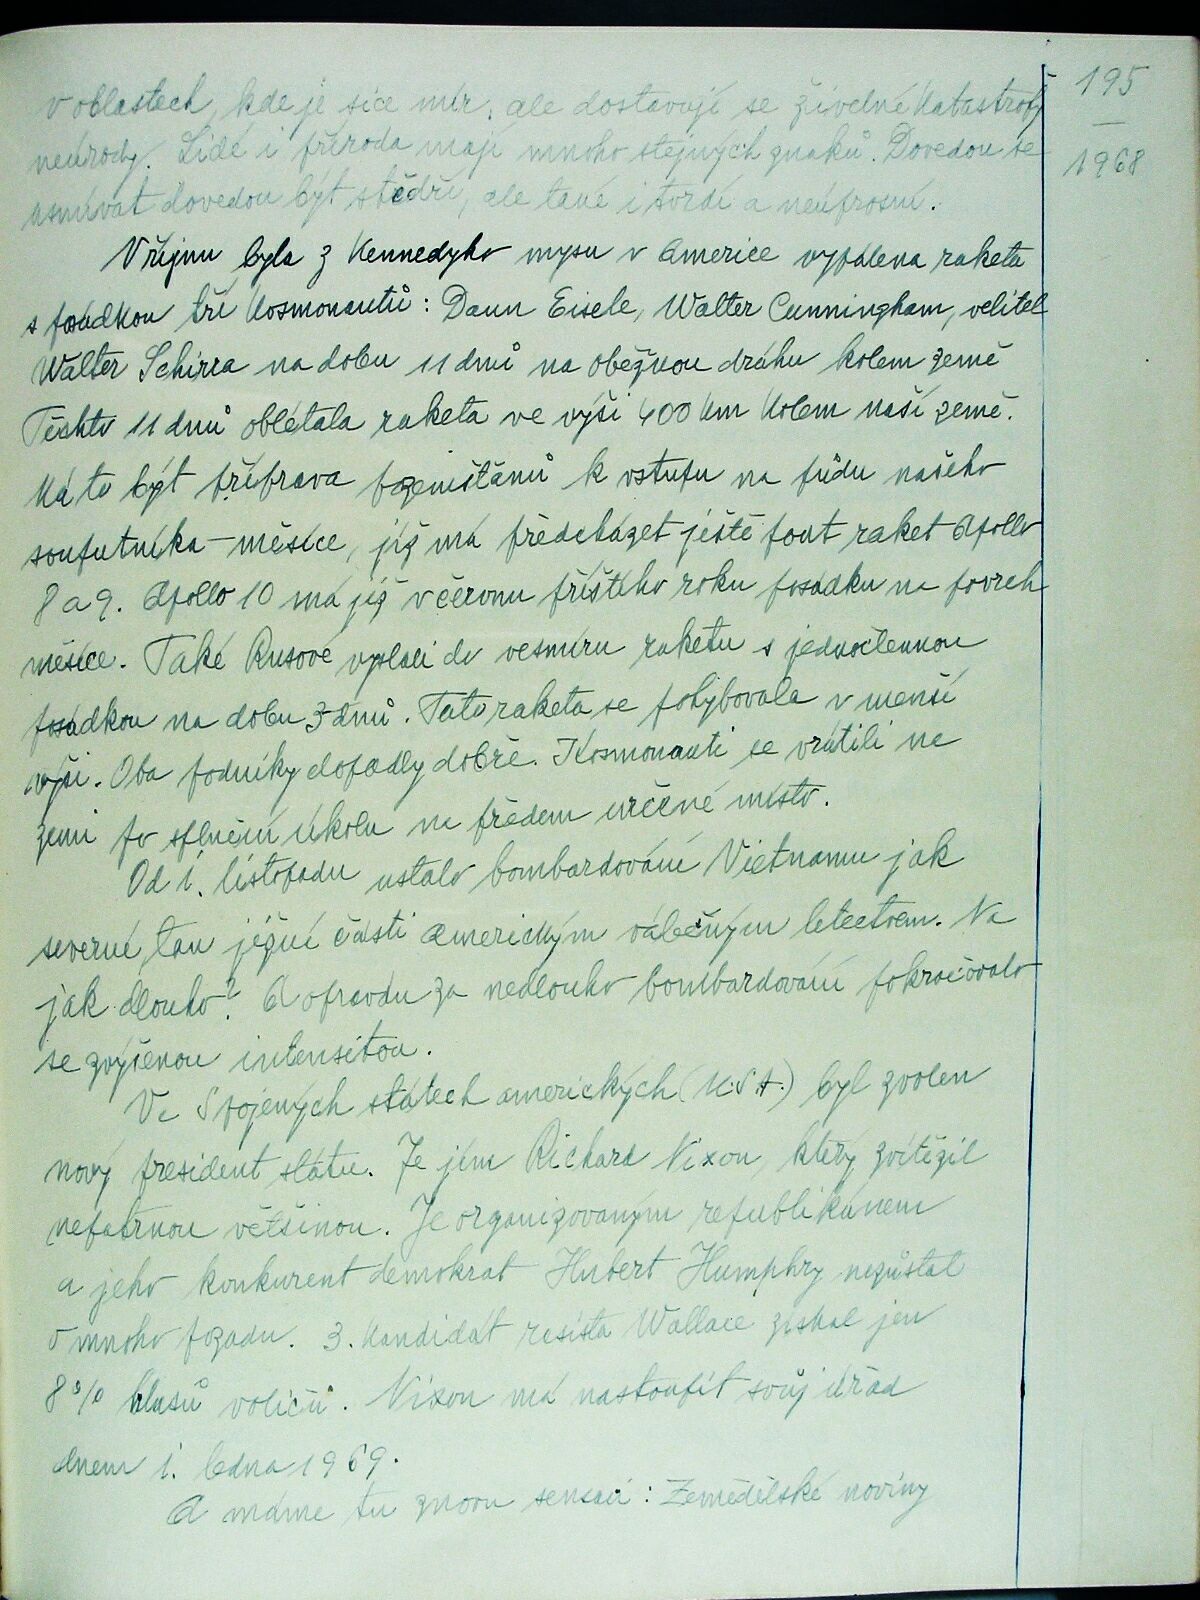 v oblastech, kde je sice mír, ale dostavují se živelné katastrofy
neúrody. Lidé i příroda mají mnoho stejných znaků. Dovedou se
usmívat dovedou být štědří, ale také i tvrdí a neúprosní.
V říjnu byla z Kennedyho mysu v Americe vypálena raketa
s posádkou tří kosmonautů: Donn Eisele, Walter Cunningham, velitel
Walter Schirra na dobu 11 dnů na oběžnou dráhu kolem země
Těchto 11 dnů oblétala raketa ve výši 400 km kolem naší země.
Má to být příprava pozemšťanů k vstupu na půdu našeho
souputníka - měsíce, jíž má předcházet ještě pout raket Apollo
8 a 9. Apollo 10 má již v červnu příštího roku posádku na povrch
měsíce. Také Rusové vyslali do vesmíru raketu s jednočlennou
posádkou na dobu 3 dnů. Tato raketa se pohybovala v menší
výši. Oba podniky dopadly dobře. Kosmonauti se vrátili na
zemi po splnění úkolu na předem určené místo.
Od 1. listopadu ustalo bombardování Vietnamu jak
severní, tak jižní části americkým válečným letectvem. Na
jak dlouho? A opravdu za nedlouho bombardování pokračovalo
se zvýšenou intensitou.
Ve Spojených státech amerických (U.S.A.) byl zvolen
nový president státu. Je jím Richard Nixon, který zvítězil
nepatrnou většinou. Je organizovaným republikánem
a jeho konkurent demokrat Hubert Humphry nezůstal
o mnoho pozadu. 3. kandidát rasista Wallace získal jen
8% hlasů voličů. Nixon má nastoupit svůj úřad
dnem 1. ledna 1969.
A máme tu znovu sensaci: Zemědělské noviny
195
1968